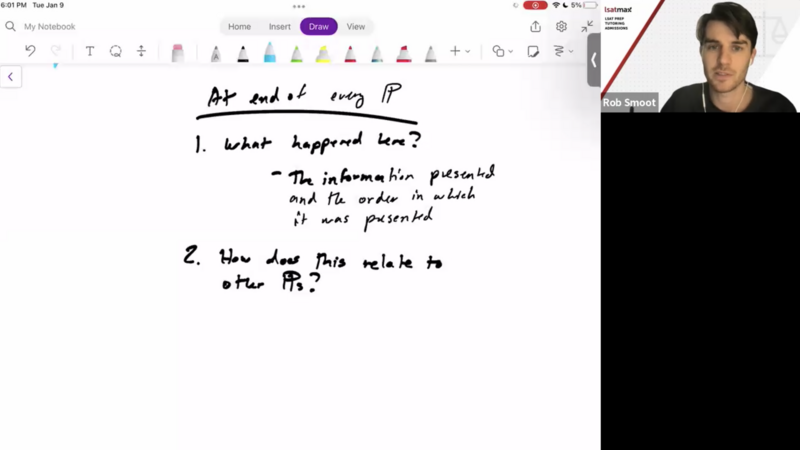 6:01 PM Tue Jan 9
5%
My Notebook
Home Insert Draw View
lsatmax
LSAT PREP
TUTORING
ADMISSIONS
Rob Smoot
At end of every ¶
1. What happened here?
- The information presented
and the order in which
it was presented
2. How does this relate to
other ¶s?